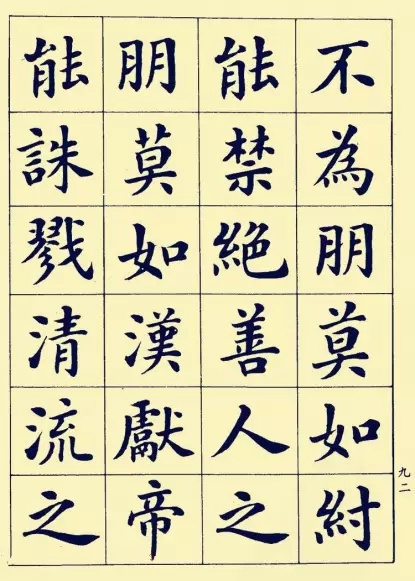 不為朋莫如紂
能禁絕善人之
朋莫如漢獻帝
能誅戮清流之
九二